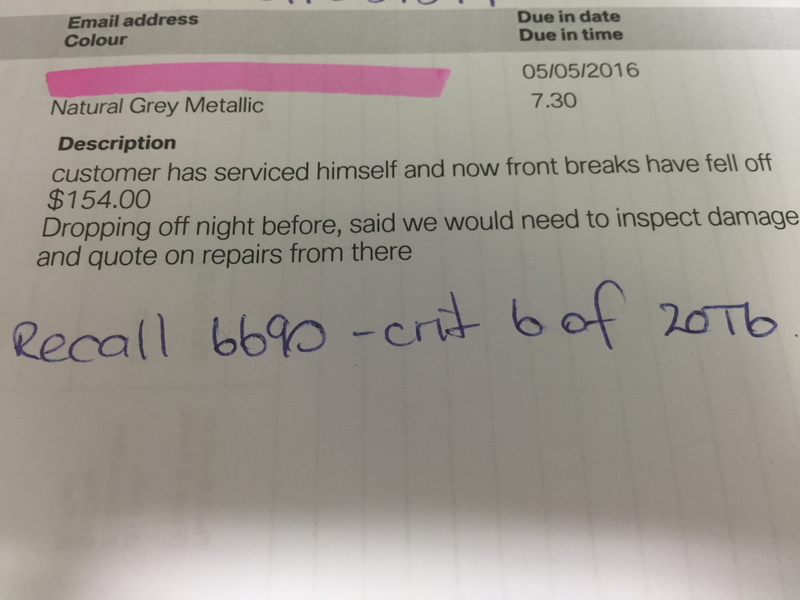 Email address
Due in date
Colour
Due in time
05/05/2016
Natural Grey Metallic
7.30
Description
customer has serviced himself and now front breaks have fell off
$154.00
Dropping off night before, said we would need to inspect damage
and quote on repairs from there
Recall 6690 - crit 6 of 20Tb.